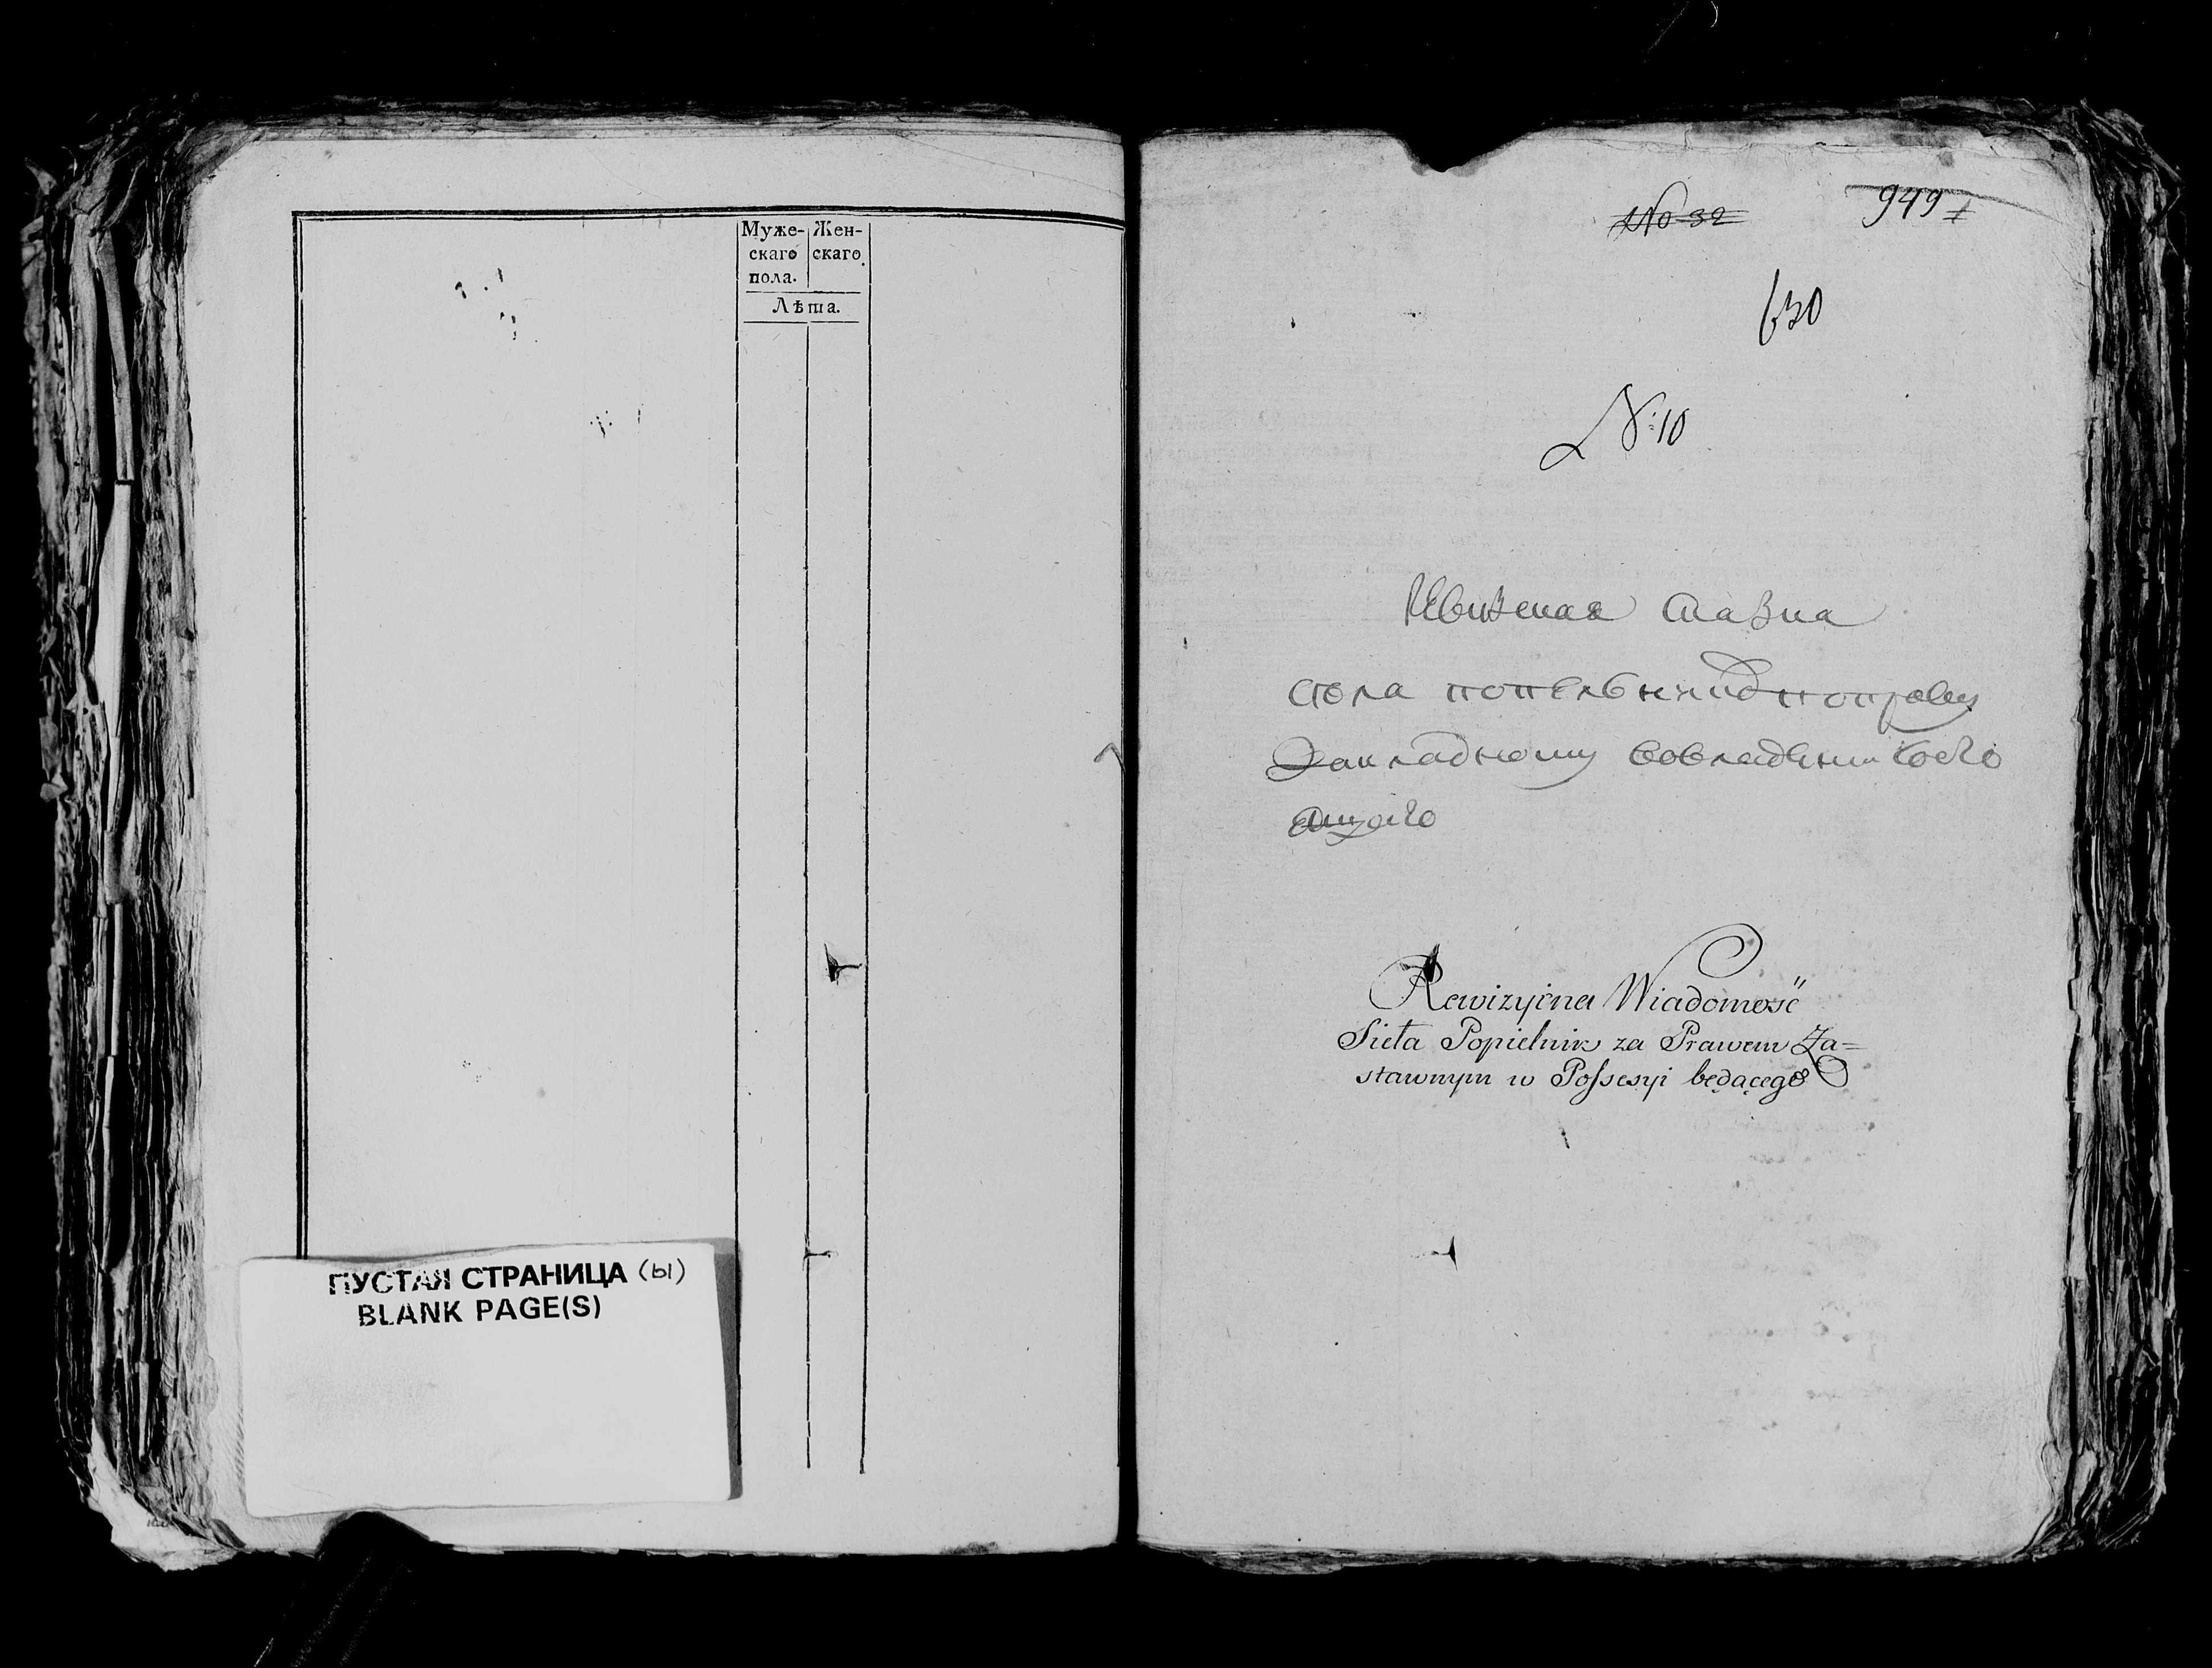 Муже- Жен-
скаго скаго
пола.
Лѣта.
ПУСТАЯ СТРАНИЦА (ы)
BLANK PAGE(S)
No 32 949
630
N: 10
Ревизская сказка
села попельникъ поправу
Закладному вовладѣнии
Rewizyina Wiadomość
Sieła Popielnik za Prawem Za=
stawnym w Possesyi będącego